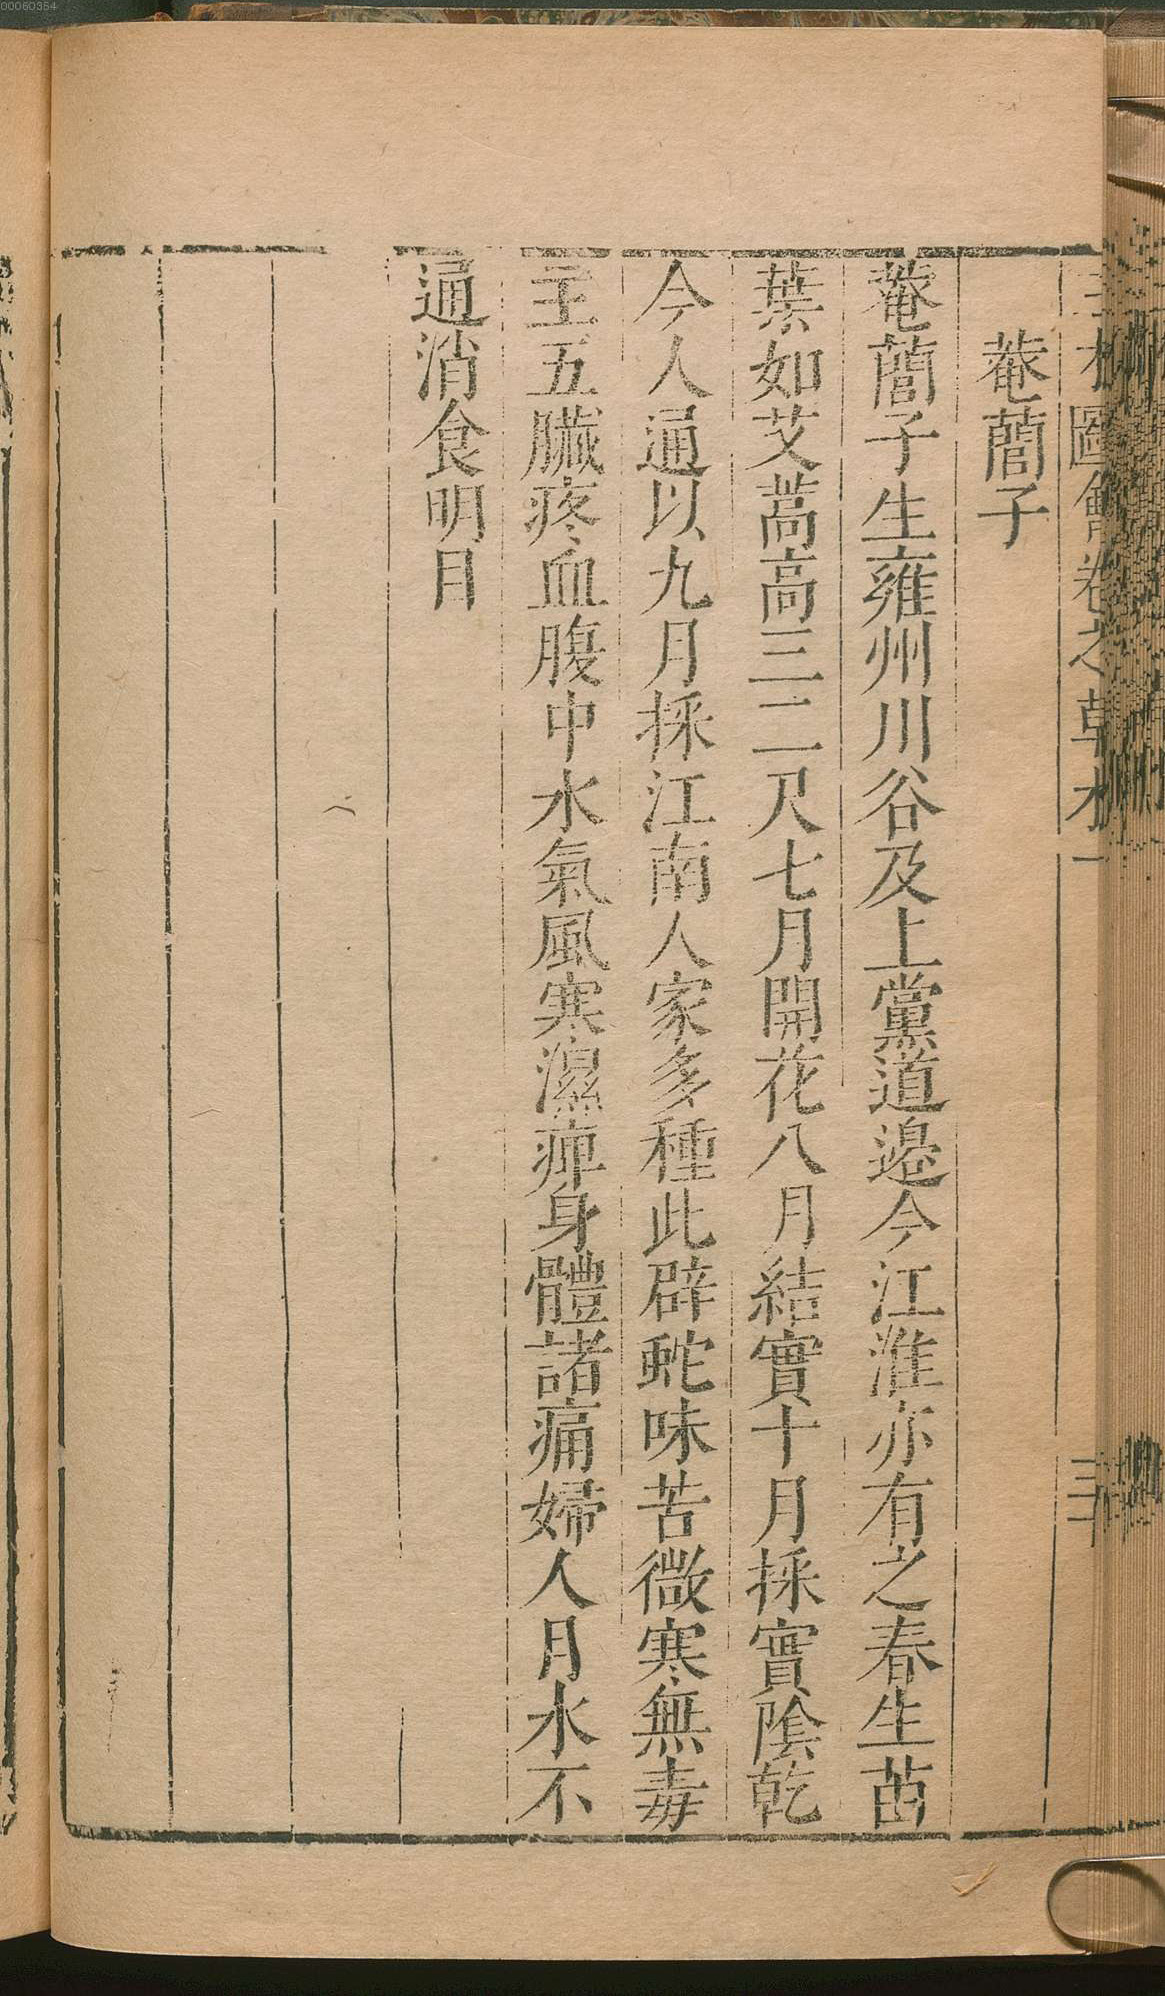 00060354
圖會卷之草木一
三十
菴䕡子
菴䕡子生雍州川谷及上黨道邊今江淮亦有之春生苗
葉如艾蒿高三二尺七月開花八月結實十月採實陰乾
今人通以九月採江南人家多種此辟蛇味苦微寒無毒
主五臟疼血腹中水氣風寒濕痺身體諸痛婦人月水不
通消食明目